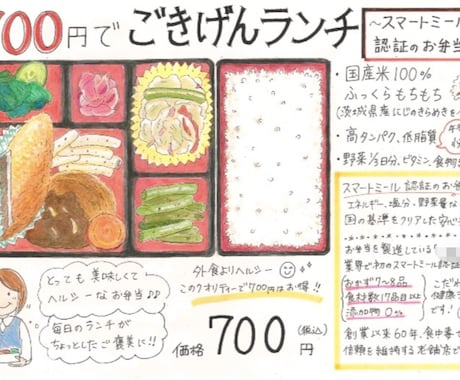 700円で ごきげんランチ
～スマートミール
認証のお弁当
・国産米100%
ふっくらもちもち
(茨城県産にじのきらめきを
・高タンパク、低脂質
・野菜1/3日分、ビタミン、食物
スマートミール認証のお弁
エネルギー、塩分、野菜量な
国の基準をクリアした安心
お弁当を製造している
業界で初のスマートミール認証
おかず7〜8品
食材数17品目以上
添加物0%
こだわ
健康
です!
創業以来60年、食中毒
信頼を維持する老舗店で
とっても美味しくて
ヘルシーなお弁当♪♪
毎日のランチが
ちょっとしたご褒美に!!
外食よりヘルシー
このクオリティーで700円はお得!!
価格 700円
(税込)